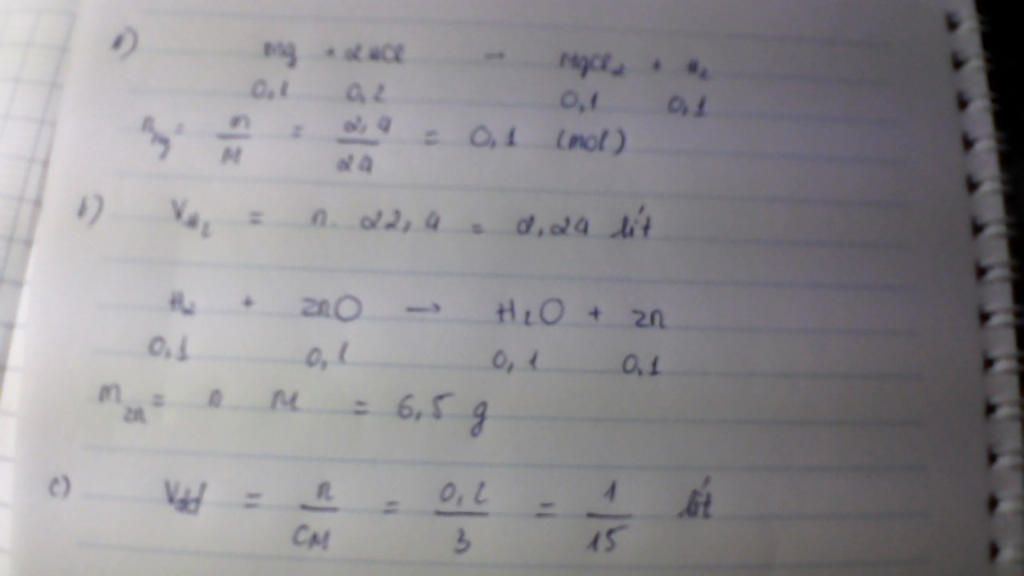 a) Mg + 2HCl → MgCl2 + H2
0,1 0,2 0,1 0,1
nMg = m/M = 2,4/24 = 0,1 (mol)
b) VH2 = n. 22,4 = 2,24 lít
H2 + ZnO → H2O + Zn
0,1 0,1 0,1 0,1
mZn = n M = 6,5 g
c) Vdd = n/CM = 0,2/3 = 1/15 lít